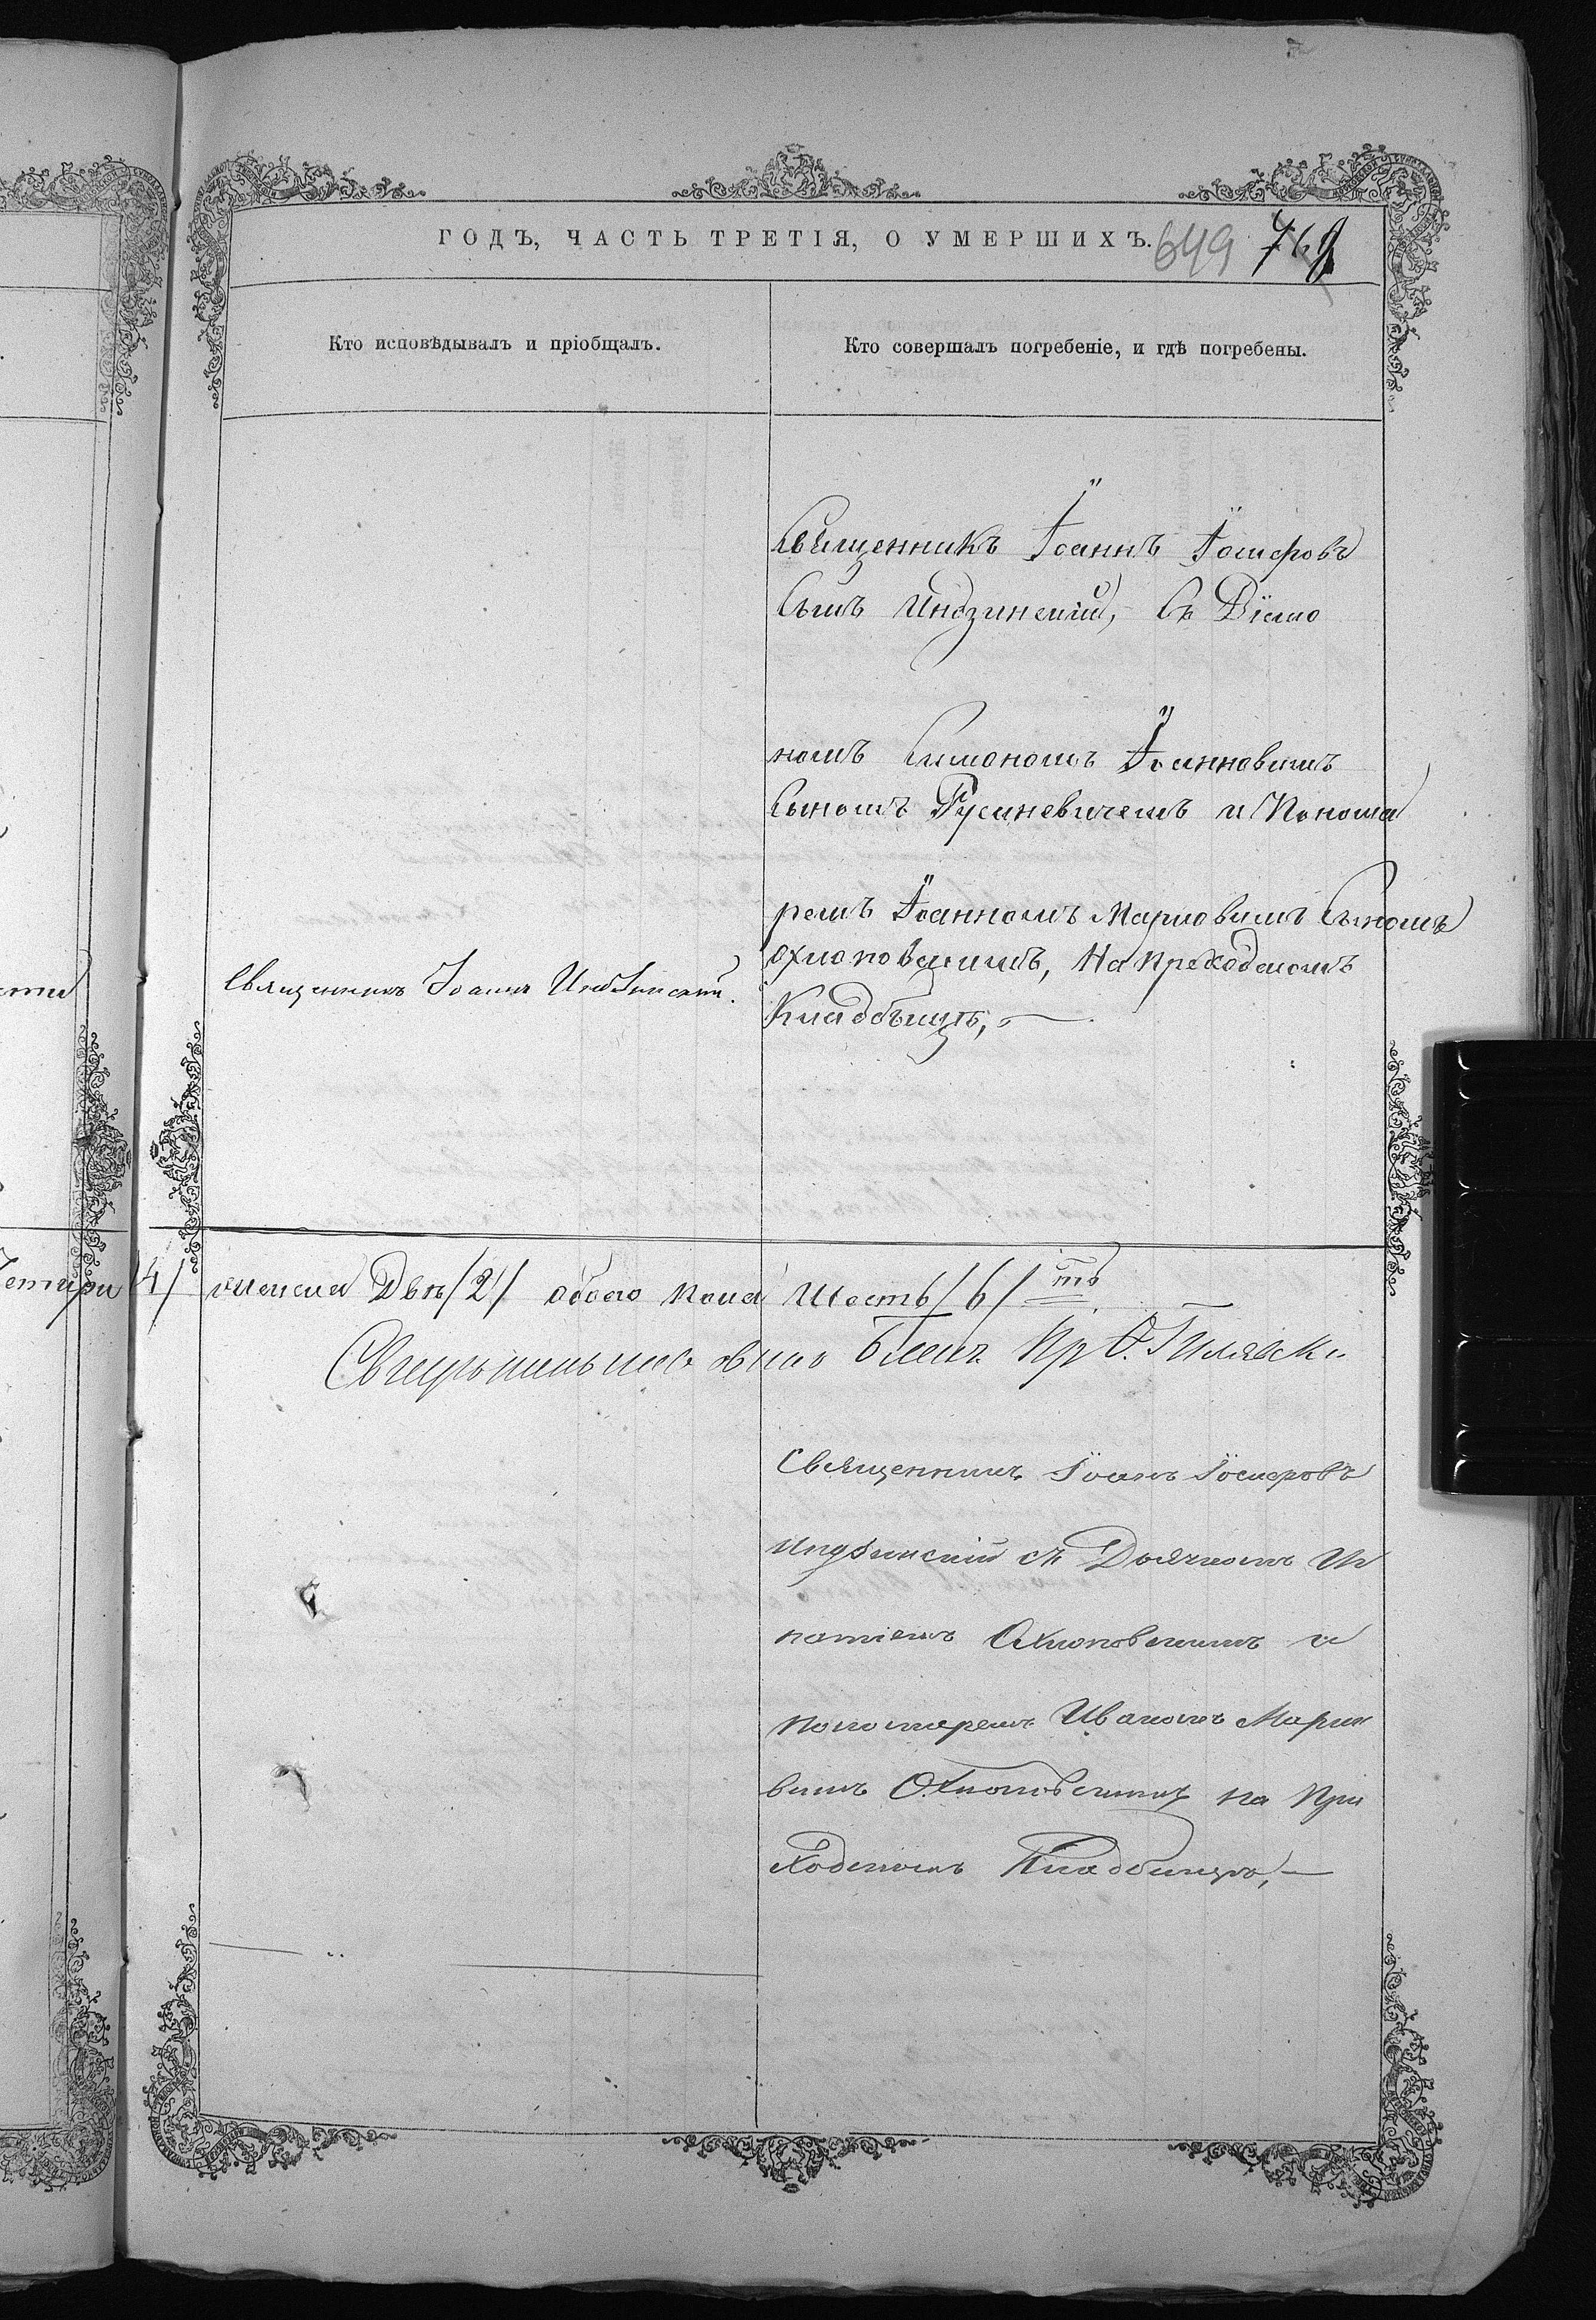 ГОДЪ, ЧАСТЬ ТРЕТІЯ, О УМЕРШИХЪ.
649
Кто исповѣдывалъ и пріобщалъ.
Кто совершалъ погребеніе, и гдѣ погребены.
Священникъ Іоаннъ Іосифовъ
Сынъ Индзинскій, Съ Діако
номъ Симономъ Іоанновымъ
Сыномъ Гусиневичемъ и Понома
ремъ Іоанномъ Марковымъ Сыномъ
Охлоповскимъ, На Преходскомъ
Кладбыщѣ,
Священникъ Іоаннъ Индзинскій.
четыри /4/ женска Двѣ /2/ обоего пола Шесть /6/ ть
Священникъ Іоанъ Іосифовъ
Индзинскій съ Дьячкомъ Иг
натіемъ Охлоповскимъ и
пономаремъ Иваномъ Марко
вымъ Охлоповскимъ на При
ходскомъ Кладбищѣ,